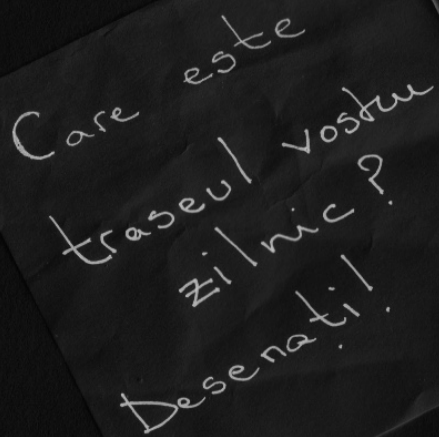 Care este
traseul vostru
zilnic?
Desenați!